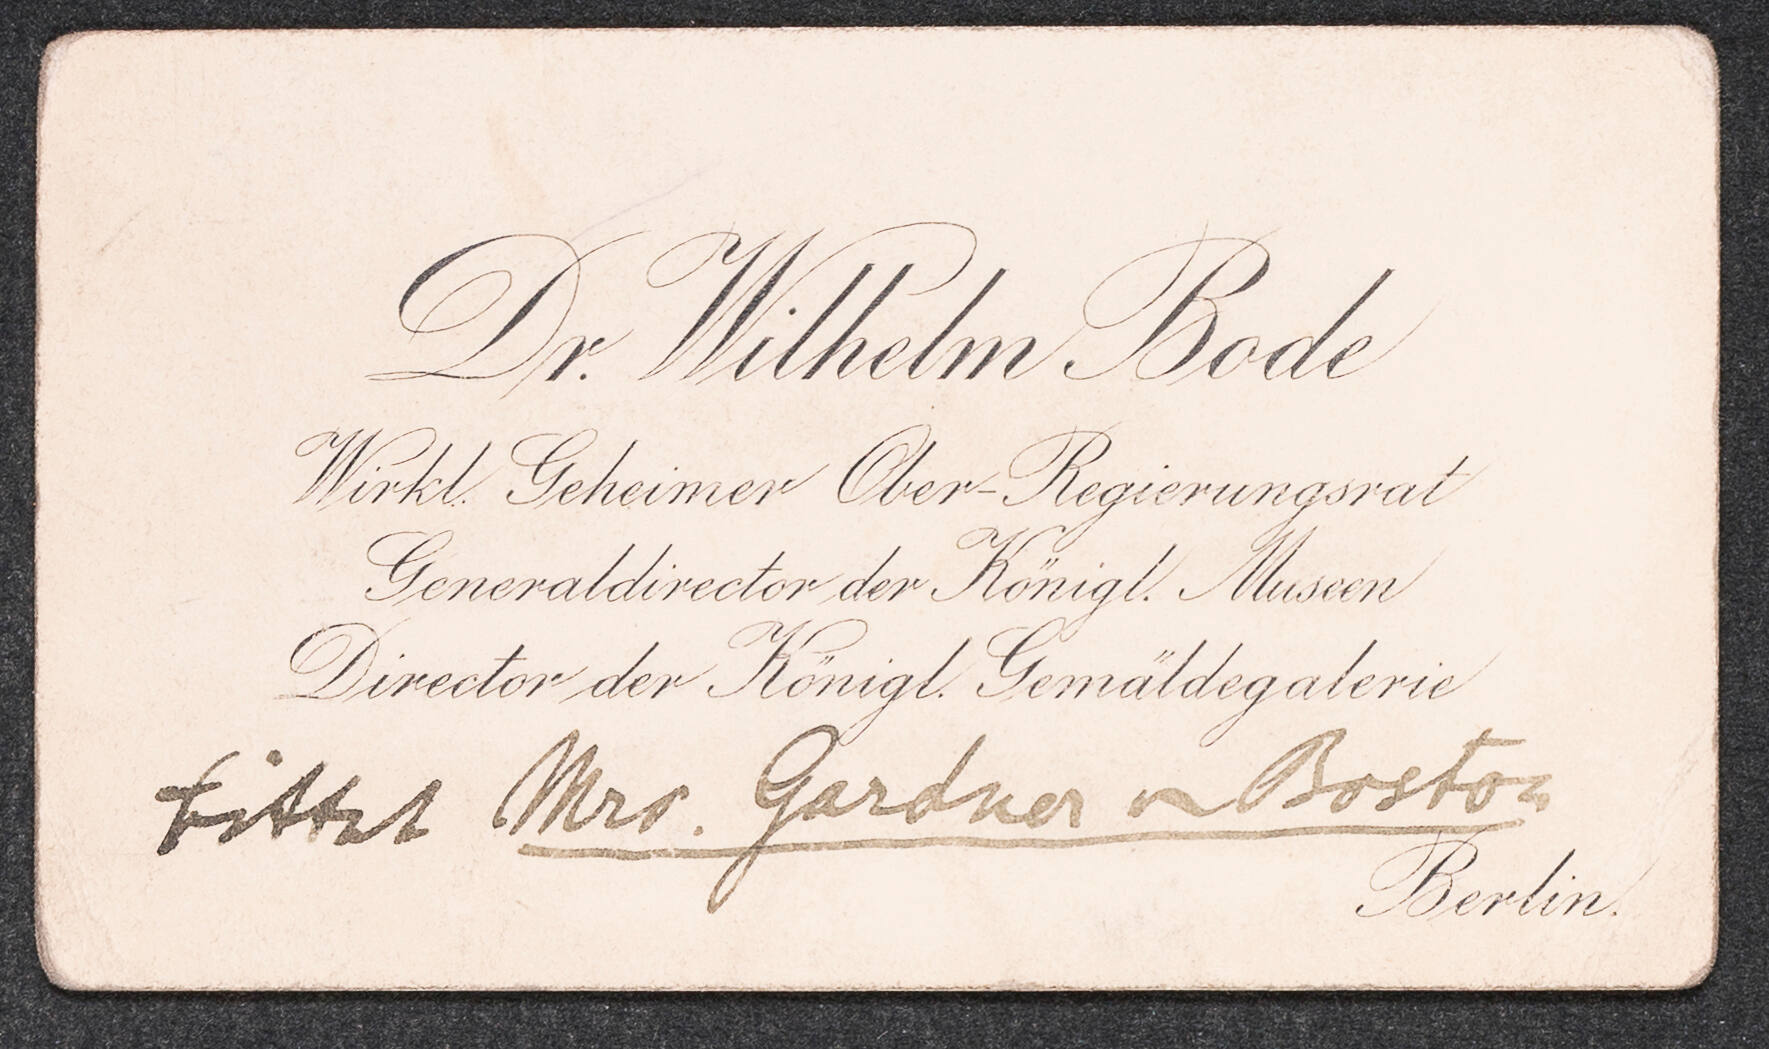 Dr. Wilhelm Bode
Wirkl. Geheimer Ober-Regierungsrat
Generaldirector der Königl. Museen
Director der Königl. Gemäldegalerie
bittet Mrs. Gardner v Boston
Berlin.